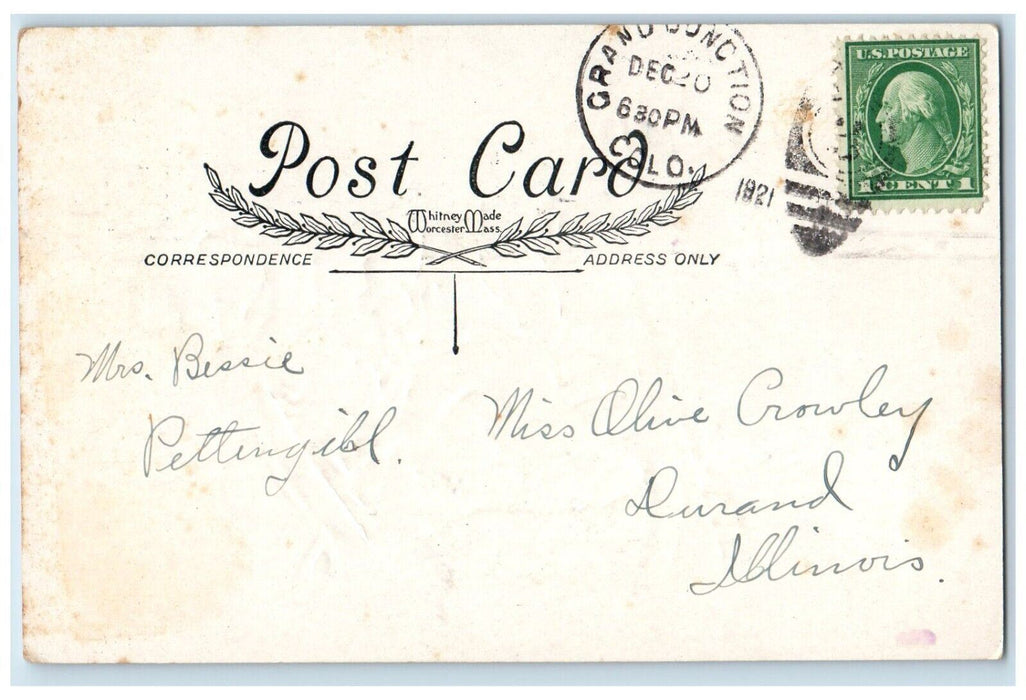 GRAND JUNCTION
DEC 20
630PM
COLO.
1921
U.S. POSTAGE
1 CENT 1
Post Card
Whitney Made
Worcester Mass.
CORRESPONDENCE
ADDRESS ONLY
Mrs. Bessie
Pettengill.
Miss Olive Crowley
Durand
Illinois.